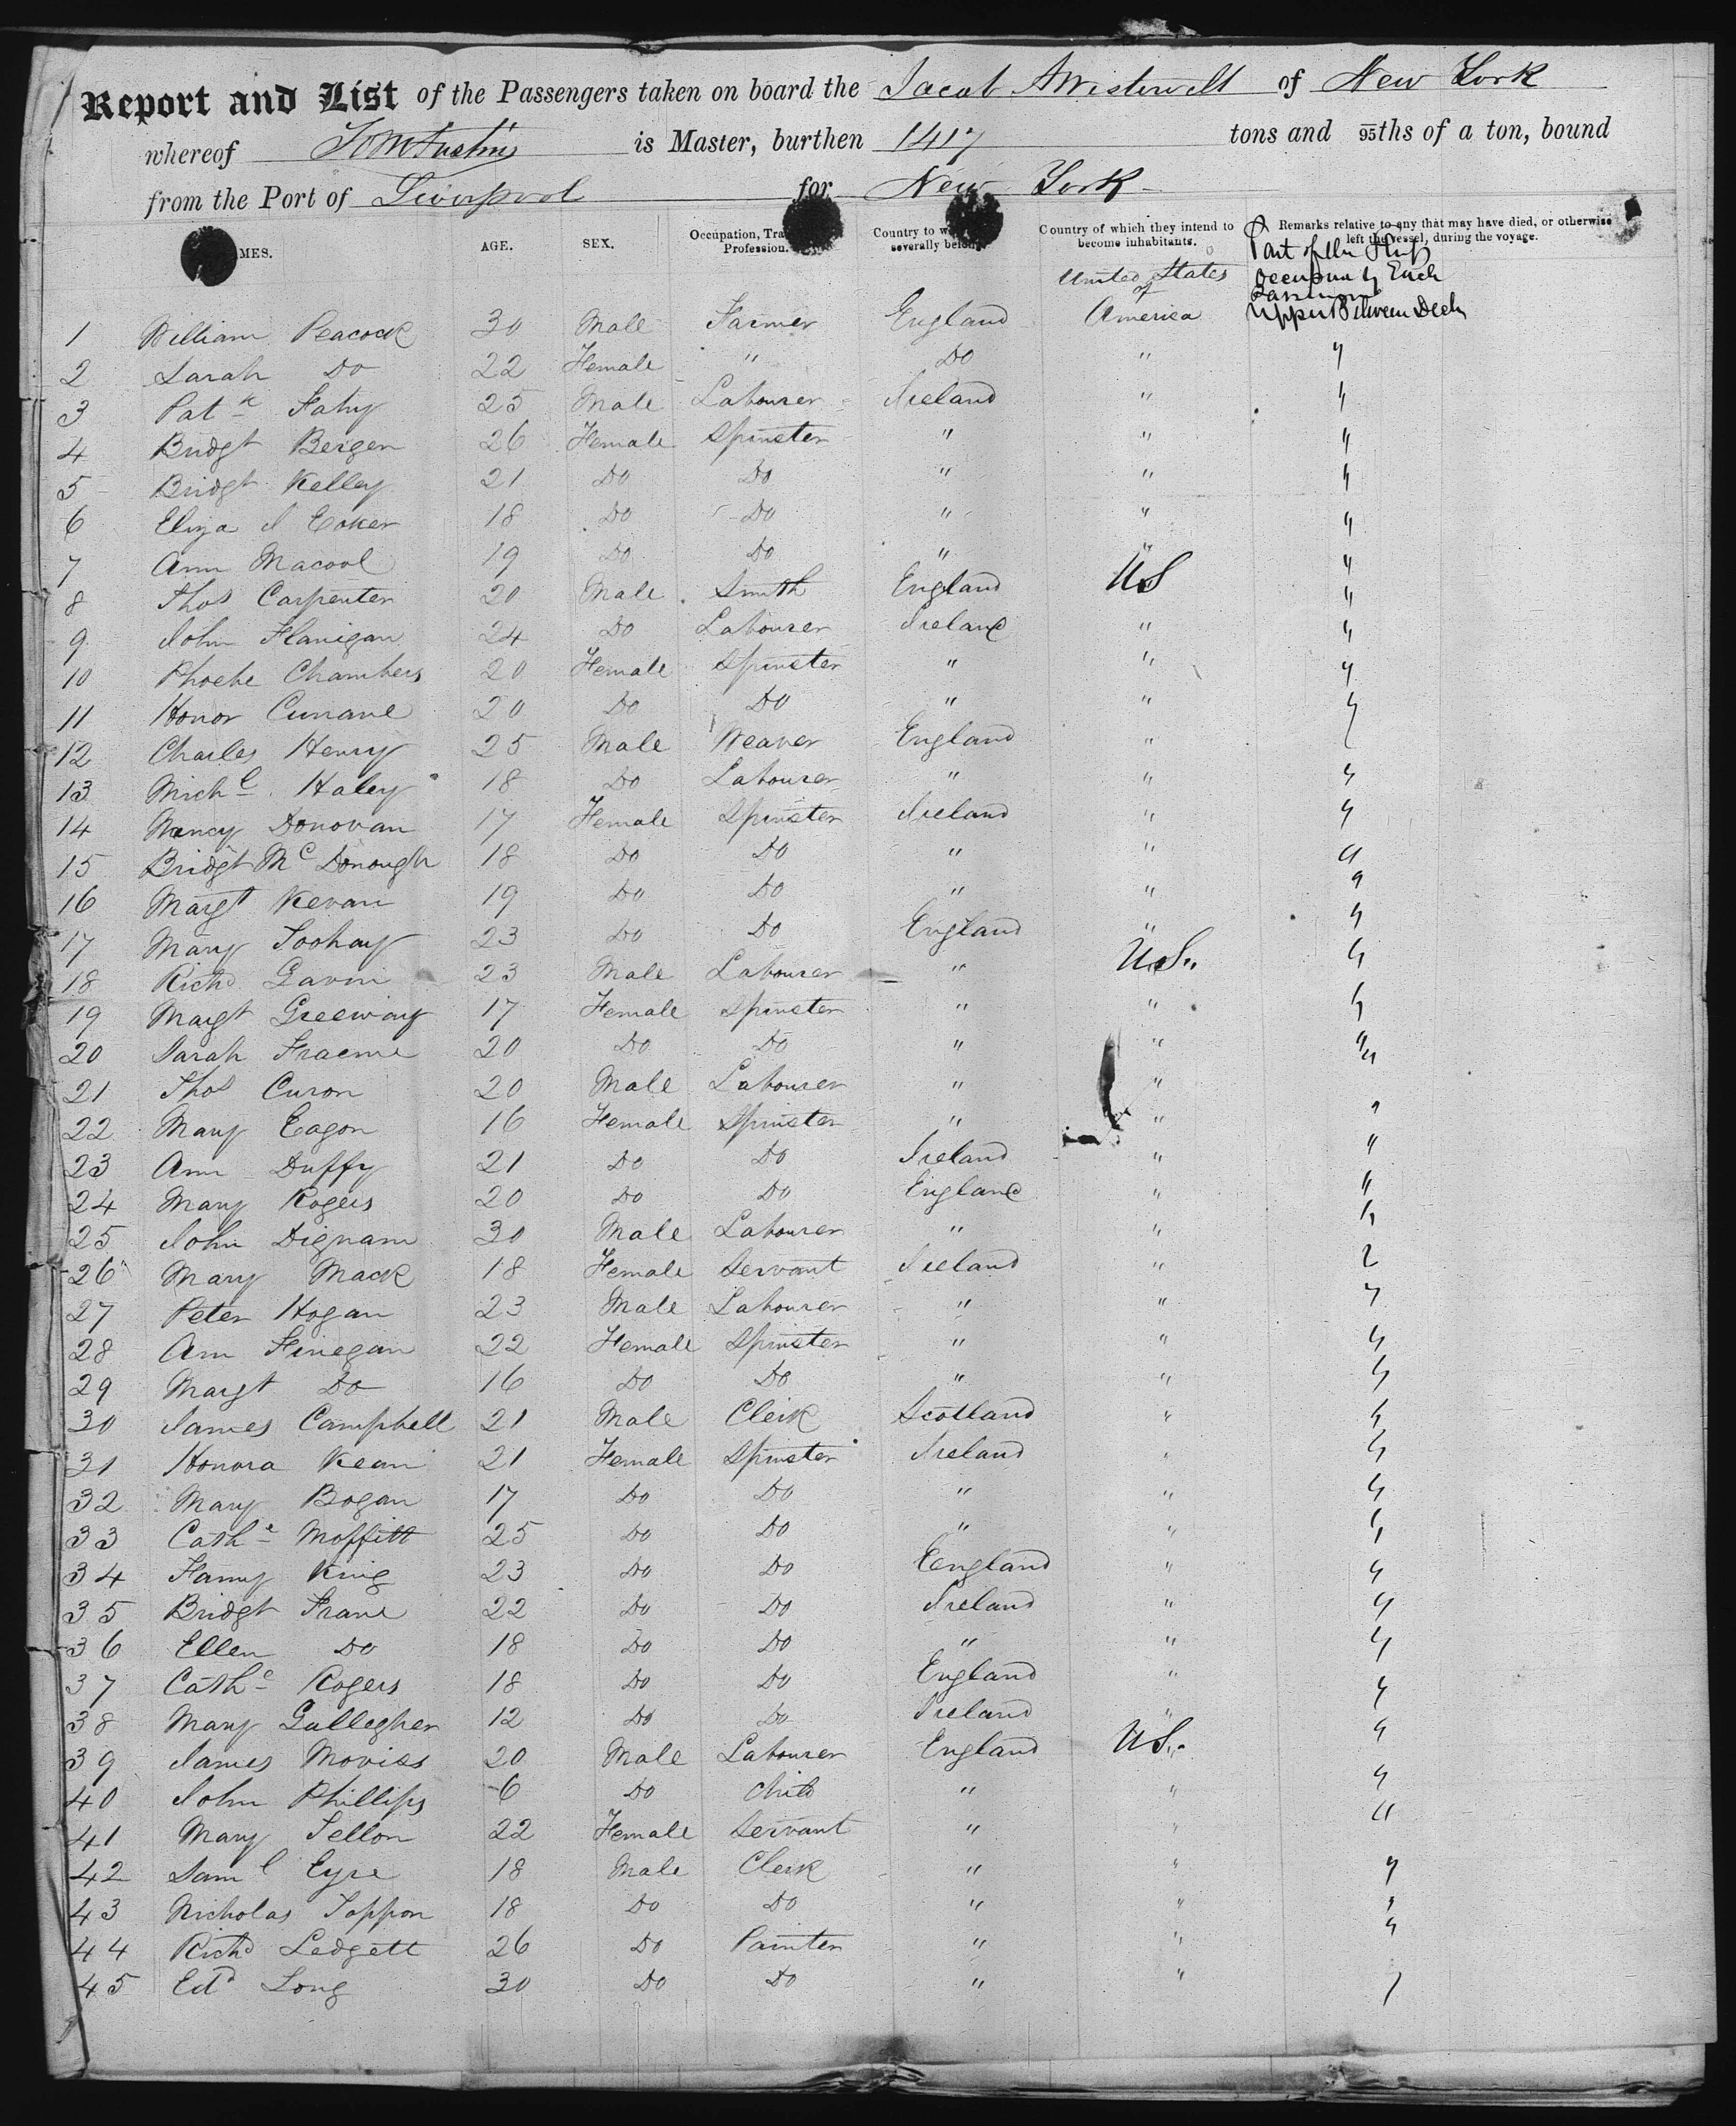 Report and List of the Passengers taken on board the Jacob A Westervelt of New York
whereof is Master, burthen 1417 tons and 95ths of a ton, bound
from the Port of Liverpool for New York
MES. AGE. SEX. Occupation, Tra Profession. Country to w severally belong. Country of which they intend to become inhabitants. Remarks relative to any that may have died, or otherwise left the vessel, during the voyage.
Part of the Ship
United States Occupied by Each
of Passenger
1 William Peacock 30 Male Farmer England America Upper Between Decks
2 Sarah Do 22 Female " Do " "
3 Patk Fahy 25 Male Labourer Ireland " "
4 Bridgt Bergen 26 Female Spinster " " "
5 Bridgt Kelley 21 Do Do " " "
6 Eliza J Coker 18 Do Do " " "
7 Ann Macool 19 Do Do " " "
8 Thos Carpenter 20 Male Smith England US "
9 John Flanigan 24 Do Labourer Ireland " "
10 Phoebe Chambers 20 Female Spinster " " "
11 Honor Cunane 20 Do Do " " "
12 Charles Henry 25 Male Weaver England "
13 Michl Haley 18 Do Labourer " " "
14 Nancy Donovan 17 Female Spinster Ireland " "
15 Bridgt McDonough 18 Do Do " " "
16 Margt Kevan 19 Do Do " " "
17 Mary Toohay 23 Do Do England " "
18 Richd Gavin 23 Male Labourer " U.S. "
19 Margt Greeway 17 Female Spinster " " "
20 Sarah Fraeme 20 Do Do " " "
21 Thos Curon 20 Male Labourer " "
22 Mary Eagon 16 Female Spinster " " "
23 Ann Duffy 21 Do Do Ireland " "
24 Mary Rogers 20 Do Do England " "
25 John Dignam 30 Male Labourer " " "
26 Mary Mack 18 Female Servant Ireland " "
27 Peter Hogan 23 Male Labourer " " "
28 Ann Finegan 22 Female Spinster " " "
29 Margt Do 16 Do Do " " "
30 James Campbell 21 Male Clerk Scotland " "
31 Honora Kean 21 Female Spinster Ireland " "
32 Mary Bogan 17 Do Do " " "
33 Cathe Moffitt 25 Do Do " " "
34 Fanny King 23 Do Do England " "
35 Bridgt Frane 22 Do Do Ireland " "
36 Ellen Do 18 Do Do " " "
37 Cathe Rogers 18 Do Do England " "
38 Mary Gallegher 12 Do Do Ireland " "
39 James Moviss 20 Male Labourer England U.S. "
40 John Phillips 6 Do Child " " "
41 Mary Tellon 22 Female Servant " " "
42 Saml Eyre 18 Male Clerk " " "
43 Nicholas Toppon 18 Do Do " " "
44 Richd Ledgett 26 Do Painter " " "
45 Edd Long 30 Do Do " " "